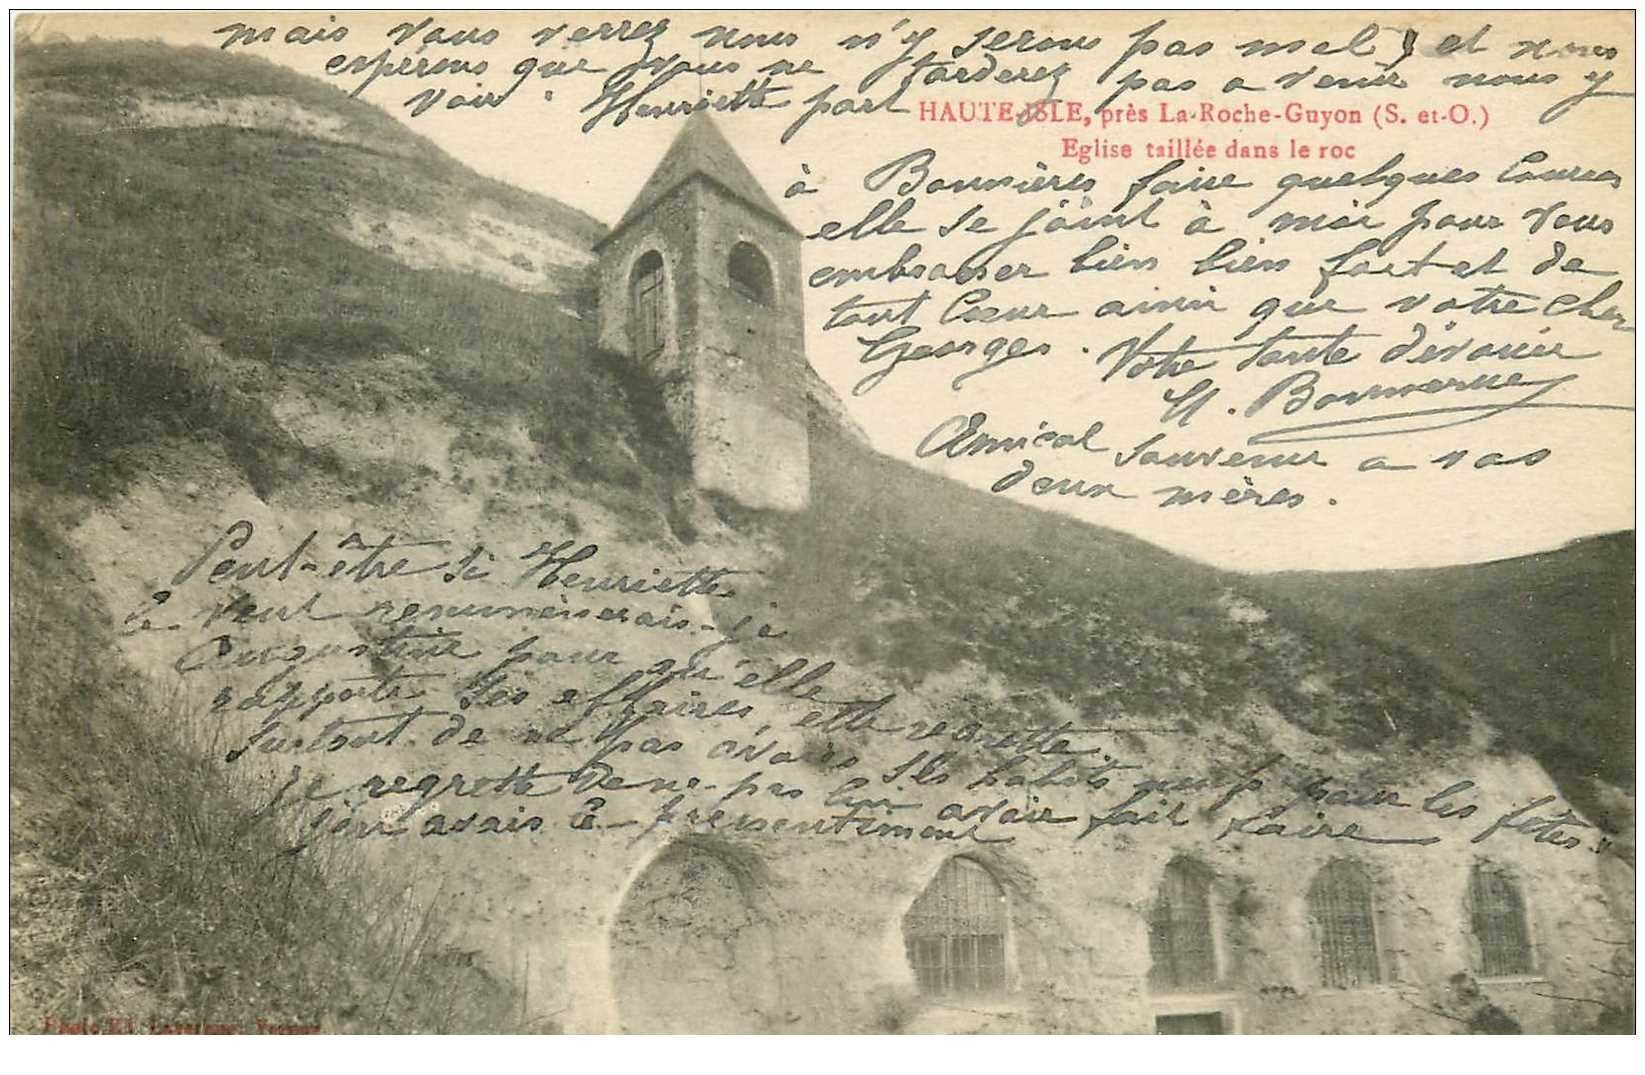 mais vous verrez nous n'y serons pas mal et nous
espérons que vous ne tarderez pas a venir nous y
voir. Henriette part
HAUTE-ISLE, près La-Roche-Guyon (S. et-O.)
Eglise taillée dans le roc
à Bonnières faire quelques Courses
elle se joint à moi pour vous
embrasser bien bien fort et de
tout Cœur ainsi que votre cher
Georges. Votre tante dévouée
Amical souvenir a vos
deux mères.
Peut-être si Henriette
le veut remmènerais-je
Augustine pour qu'elle
rapporte ses effaires, elle regrette
surtout de ne pas avoir ses habits neufs pour les fêtes.
je regrette de ne pas lui avoir fait faire
j'en avais le pressentiment